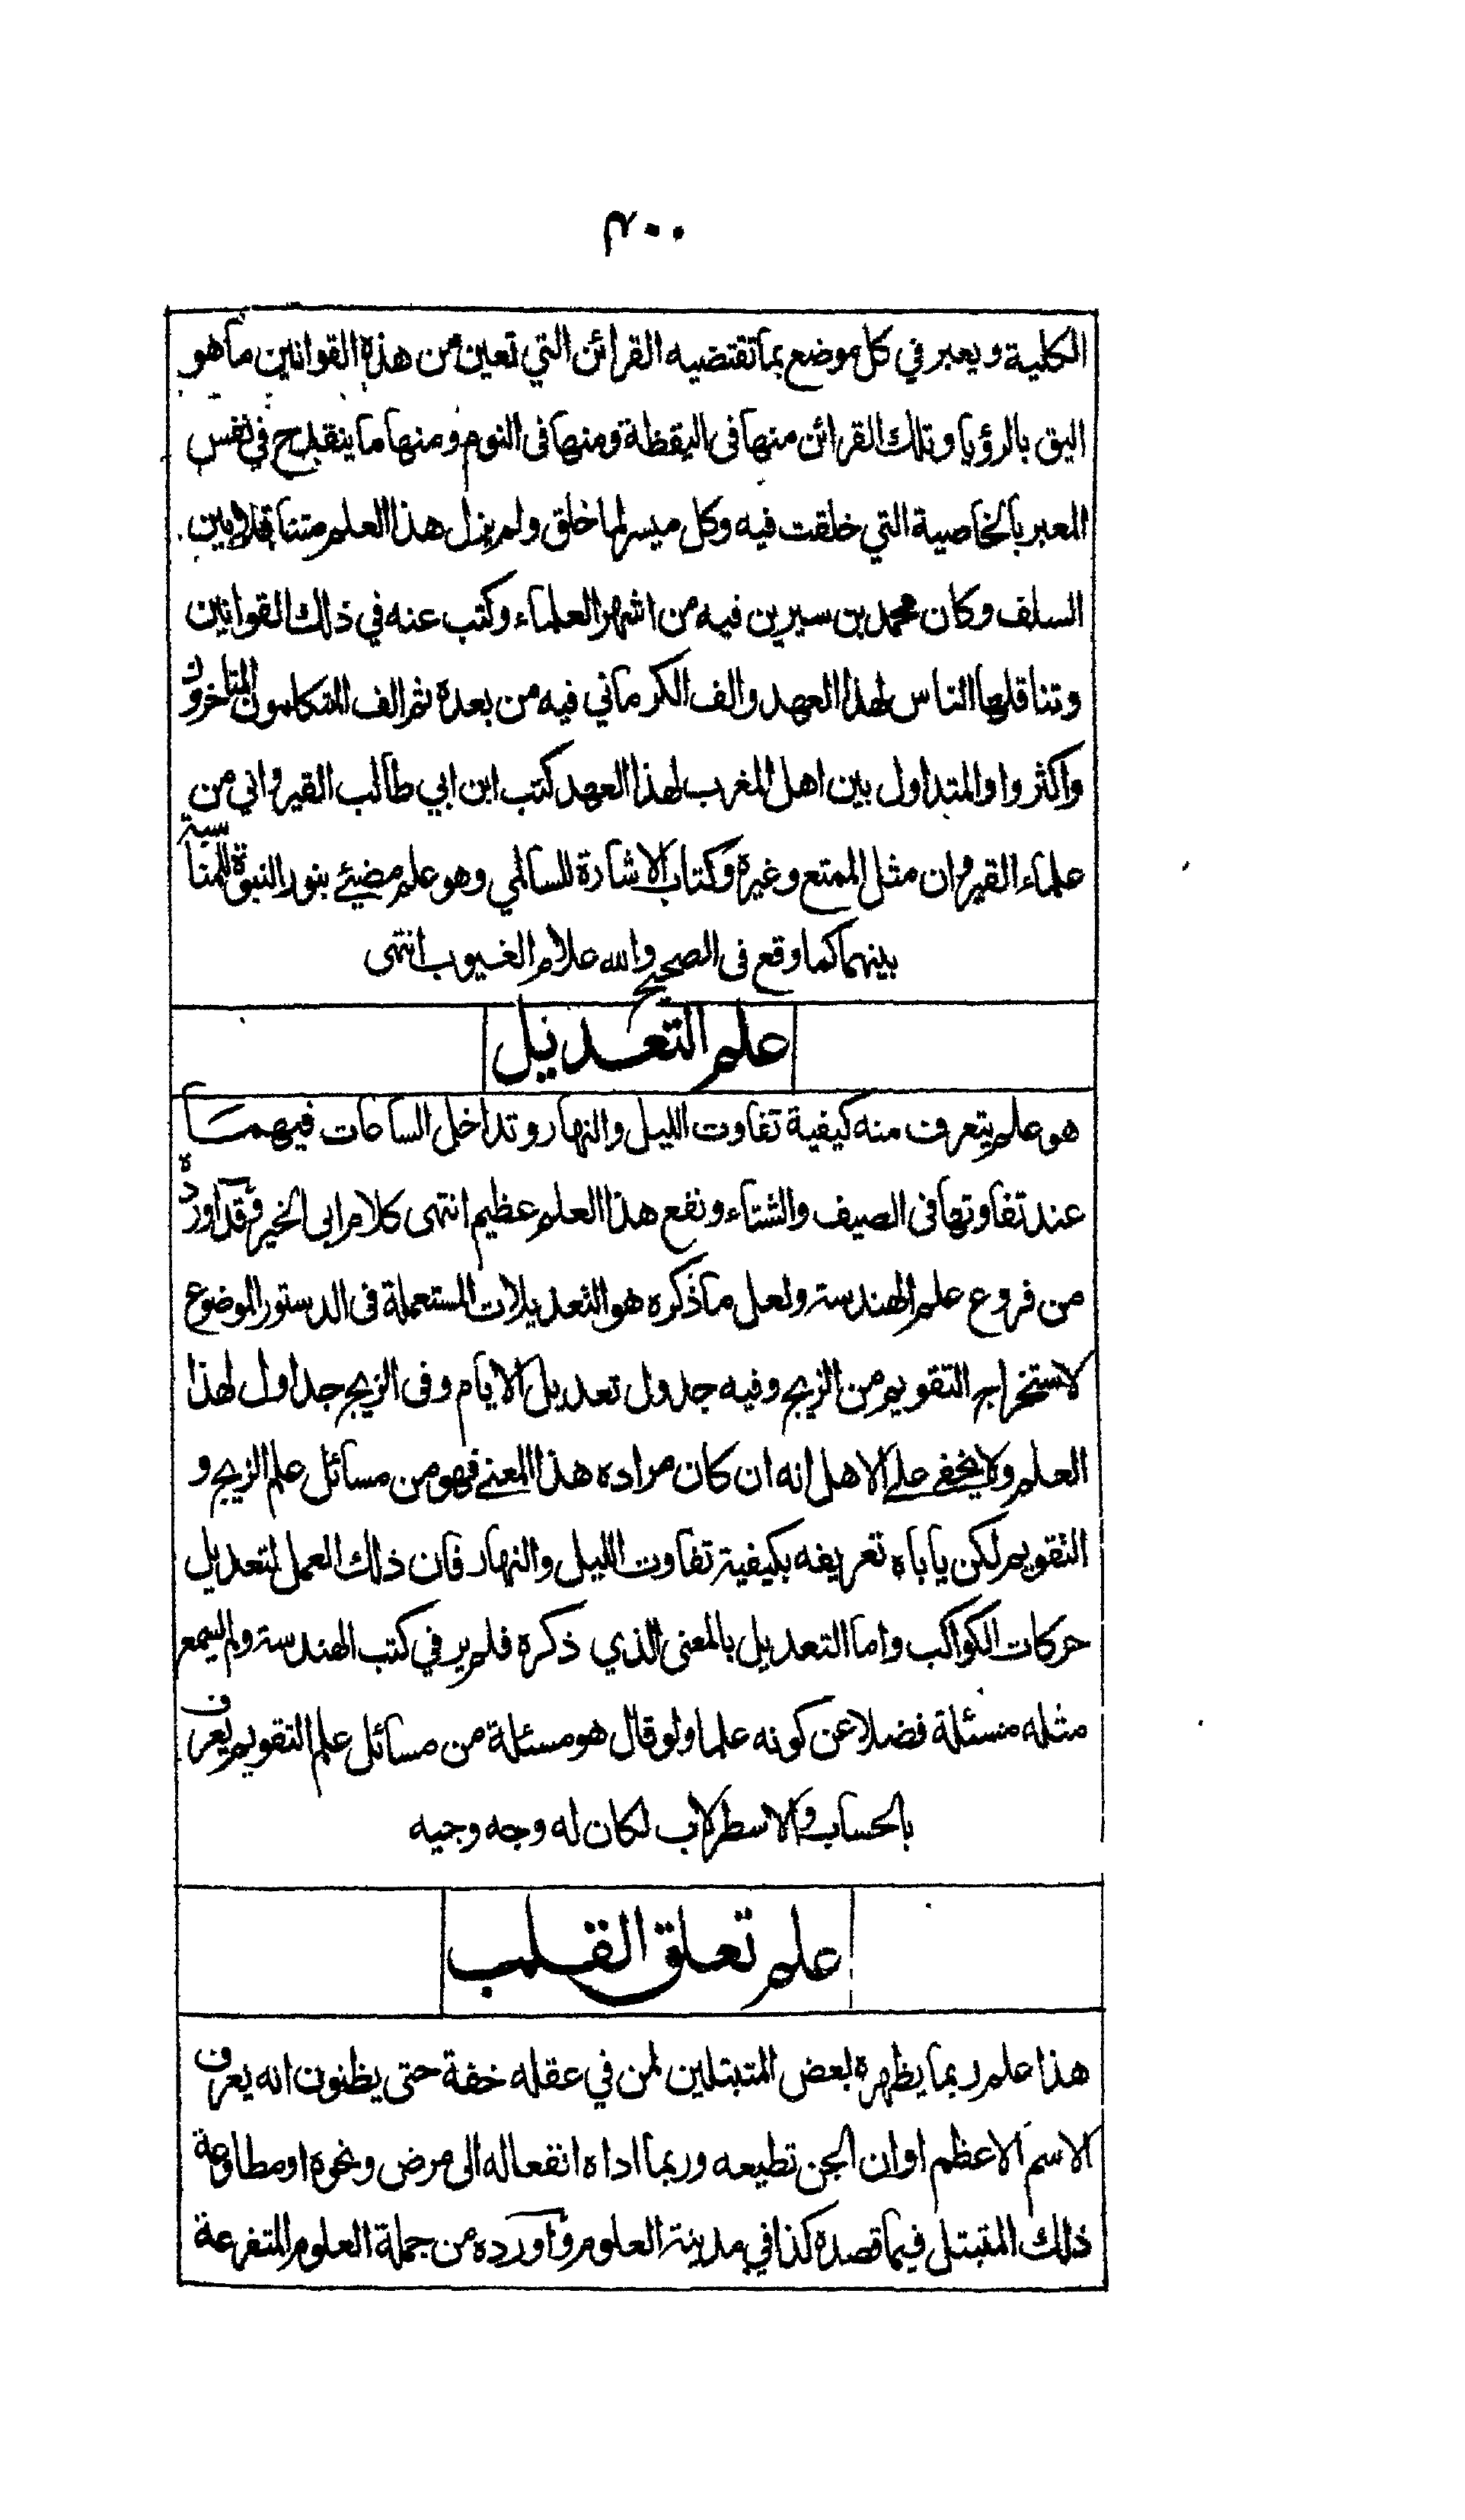 ٤٠٠
الكلية ويعبر في كل موضع بما تقتضيه القرائن التي تعين من هذه القوانين ما هو
اليق بالرؤيا وتلك القرائن منها فى اليقظة ومنها فى النوم ومنها ما ينقدح في نفس
المعبر بالخاصية التي خلقت فيه وكل ميسر لما خلق ولم يزل هذا العلم متناقلا بين
السلف وكان محمد بن سيرين فيه من اشهر العلماء وكتب عنه في ذلك القوانين
وتناقلها الناس لهذا العهد والف الكرماني فيه من بعده ثم الف المتكلمون المتاخرون
واكثروا والمتداول بين اهل المغرب لهذا العهد كتب ابن ابي طالب القيرواني من
علماء القيروان مثل الممتع وغيره وكتاب الاشارة للسالمي وهو علم مضيئ بنور النبوة للمناسبة
بينهما كما وقع فى الصحيح والله علام الغيوب انتهى
علم التعديل
هو علم يتعرف منه كيفية تفاوت الليل والنهار وتداخل الساعات فيهما
عند تفاوتها فى الصيف والشتاء ونفع هذا العلم عظيم انتهى كلام ابى الخير وقد اورده
من فروع علم الهندسة ولعل ما ذكره هو التعديلات المستعملة فى الدستور الموضوع
لاستخراج التقويم من الزيج وفيه جدول تعديل الايام وفى الزيج جداول لهذا
العلم ولا يخفى على الاهل انه ان كان مراده هذا المعنى فهو من مسائل علم الزيج و
التقويم لكن ياباه تعريفه بكيفية تفاوت الليل والنهار فان ذلك العمل لتعديل
حركات الكواكب واما التعديل بالمعنى الذي ذكره فلم ير في كتب الهندسة ولم يسمع
مثله مسئلة فضلا عن كونه علما ولو قال هو مسئلة من مسائل علم التقويم يعرف
بالحساب والاسطرلاب لكان له وجه وجيه
علم تعلق القلب
هذا علم ربما يظهره بعض المتبتلين لمن في عقله خفة حتى يظنون انه يعرف
الاسم الاعظم او ان الجن تطيعه وربما اداه انفعاله الى مرض ونحوه او مطاوعة
ذلك المتبتل فيما قصده كذا في مدينة العلوم واورده من جملة العلوم المتفرعة